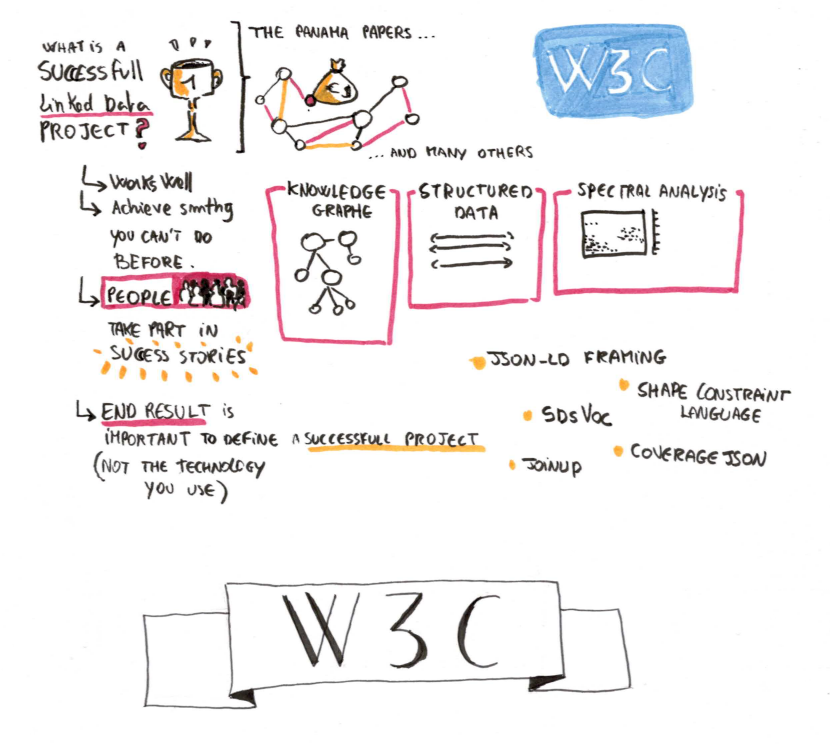 WHAT iS A
SUCCESSfull
Linked Data
PROJECT?
1
THE PANAMA PAPERS ...
€$
... AND MANY OTHERS
W3C
Works Well
Achieve smthg
YOU CAN'T DO
BEFORE.
PEOPLE
TAKE PART iN
SUCCESS STORiES
END RESULT is
iMPORTANT TO DEFiNE A SUCCESSFULL PROJECT
(NOT THE TECHNOLOGY
YOU USE)
KNOWLEDGE
GRAPHE
STRUCTURED
DATA
SPECTRAL ANALYSiS
JSON-LD FRAMING
SHAPE CONSTRAiNT
LANGUAGE
SDSVOC
COVERAGE JSON
JOiNUP
W3C